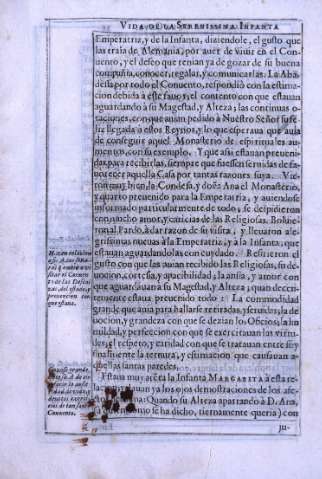 VIDA DE LA SERENISSIMA INFANTA
Emperatriz, y de la Infanta, diziendole, el gusto que
las traia de Alemania, por auer de viuir en el Con-
uento, y el deseo que tenian ya de gozar de su buena
compañia, conocer, regalar, y comunicarlas. La Aba-
desa por todo el Conuento, respondiò con la estima-
cion debida à este fauor, y el contento con que estauan
aguardando à su Magestad, y Alteza; las continuas o-
raciones, con que auian pedido à Nuestro Señor fuese
su llegada à estos Reynos, y lo que esperaua que auia
de conseguir aquel Monasterio de espirituales au-
mentos, con su exemplo. Y que assi estauan preueni-
das para recibirlas, siempre que fuessen seruidas de fa-
uorecer aquella Casa por tantas razones suya. Vie-
ron muy bien la Condesa, y doña Ana el Monasterio,
y quarto preuenido para la Emperatriz, y auiendose
informado particularmente de todo, se despidieron
con mucho amor, y caricias de las Religiosas. Boluie-
ron al Pardo, à dar razon de su visita, y lleuaron ale-
grissimas nueuas à la Emperatriz, y a la Infanta, que
estauan aguardandolas con cuydado. Refirieron el
gusto con que las auian recibido las Religiosas, su de-
uocion, cortesia, y apacibilidad; la ansia, y amor con
que aguardauan à su Magestad, y Alteza; quan decen-
temente estaua preuenido todo: La commodidad
grande que auia para hallarse retiradas, y seruidas, la de-
uocion, y grandeza con que se dezian los Oficios, la hu-
mildad, y perfeccion con que se exercitauan las virtu-
des, el respeto, y caridad con que se tratauan entre si, y
finalmente la ternura, y estimacion que causauan a-
quellas santas paredes.
Estaua muy atenta la Infanta MARGARITA à esta re-
Quando su Alteza apartando à D. Ana,
como se ha dicho, tiernamente queria) con
ju-
Conuento.